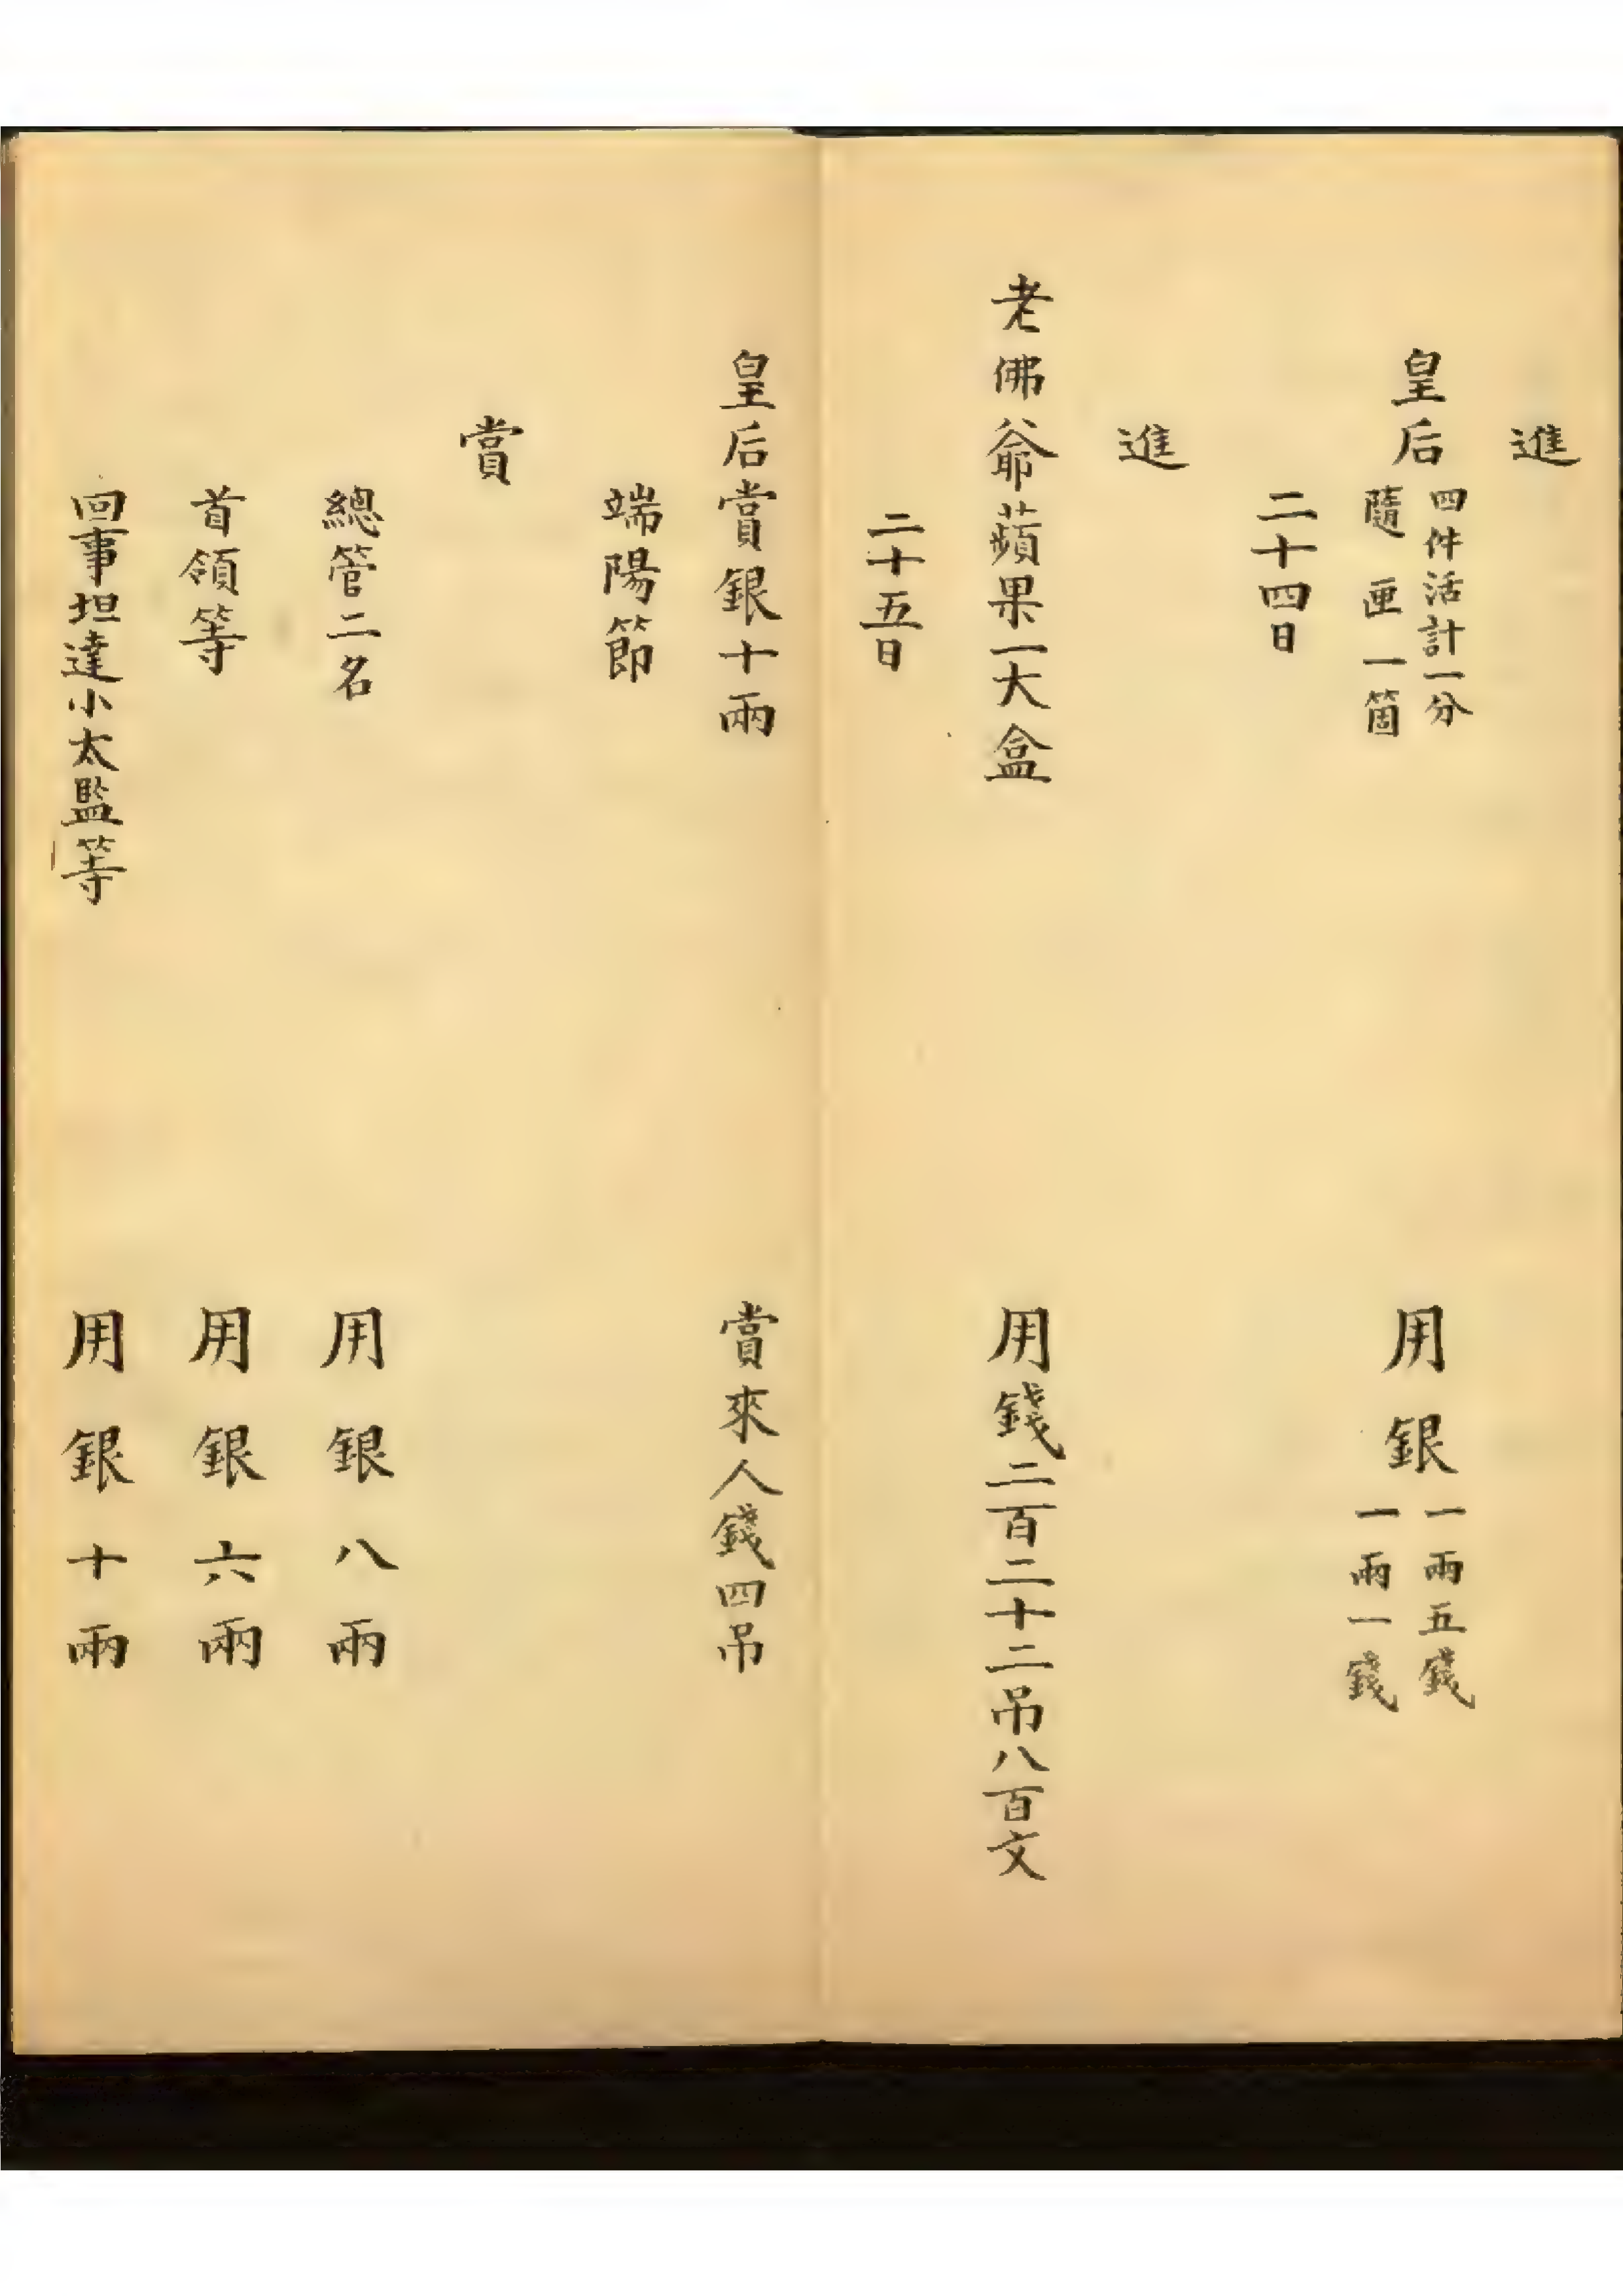 進
皇后
四件活計一分
隨匣一箇
用銀
一兩五錢
一兩一錢
二十四日
進
老佛爺蘋果一大盒
用錢二百二十二吊八百文
二十五日
皇后賞銀十兩
賞來人錢四吊
端陽節
賞
總管二名
用銀八兩
首領等
用銀六兩
回事坦達小太監等
用銀十兩